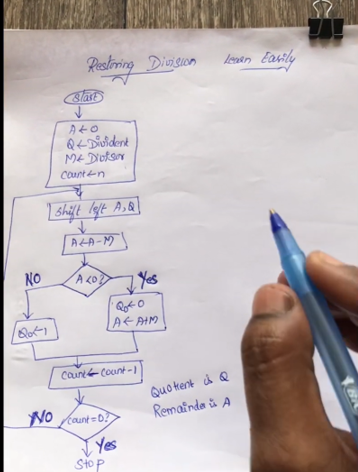 Restoring Division Learn Easily
Start
A←0
Q←Divident
M←Divisor
Count←n
shift left A,Q
A←A-M
A<0?
NO
Yes
Q₀←1
Q₀←0
A←A+M
Count←count-1
Quotient is Q
Remainder is A
Count=0?
NO
Yes
Stop